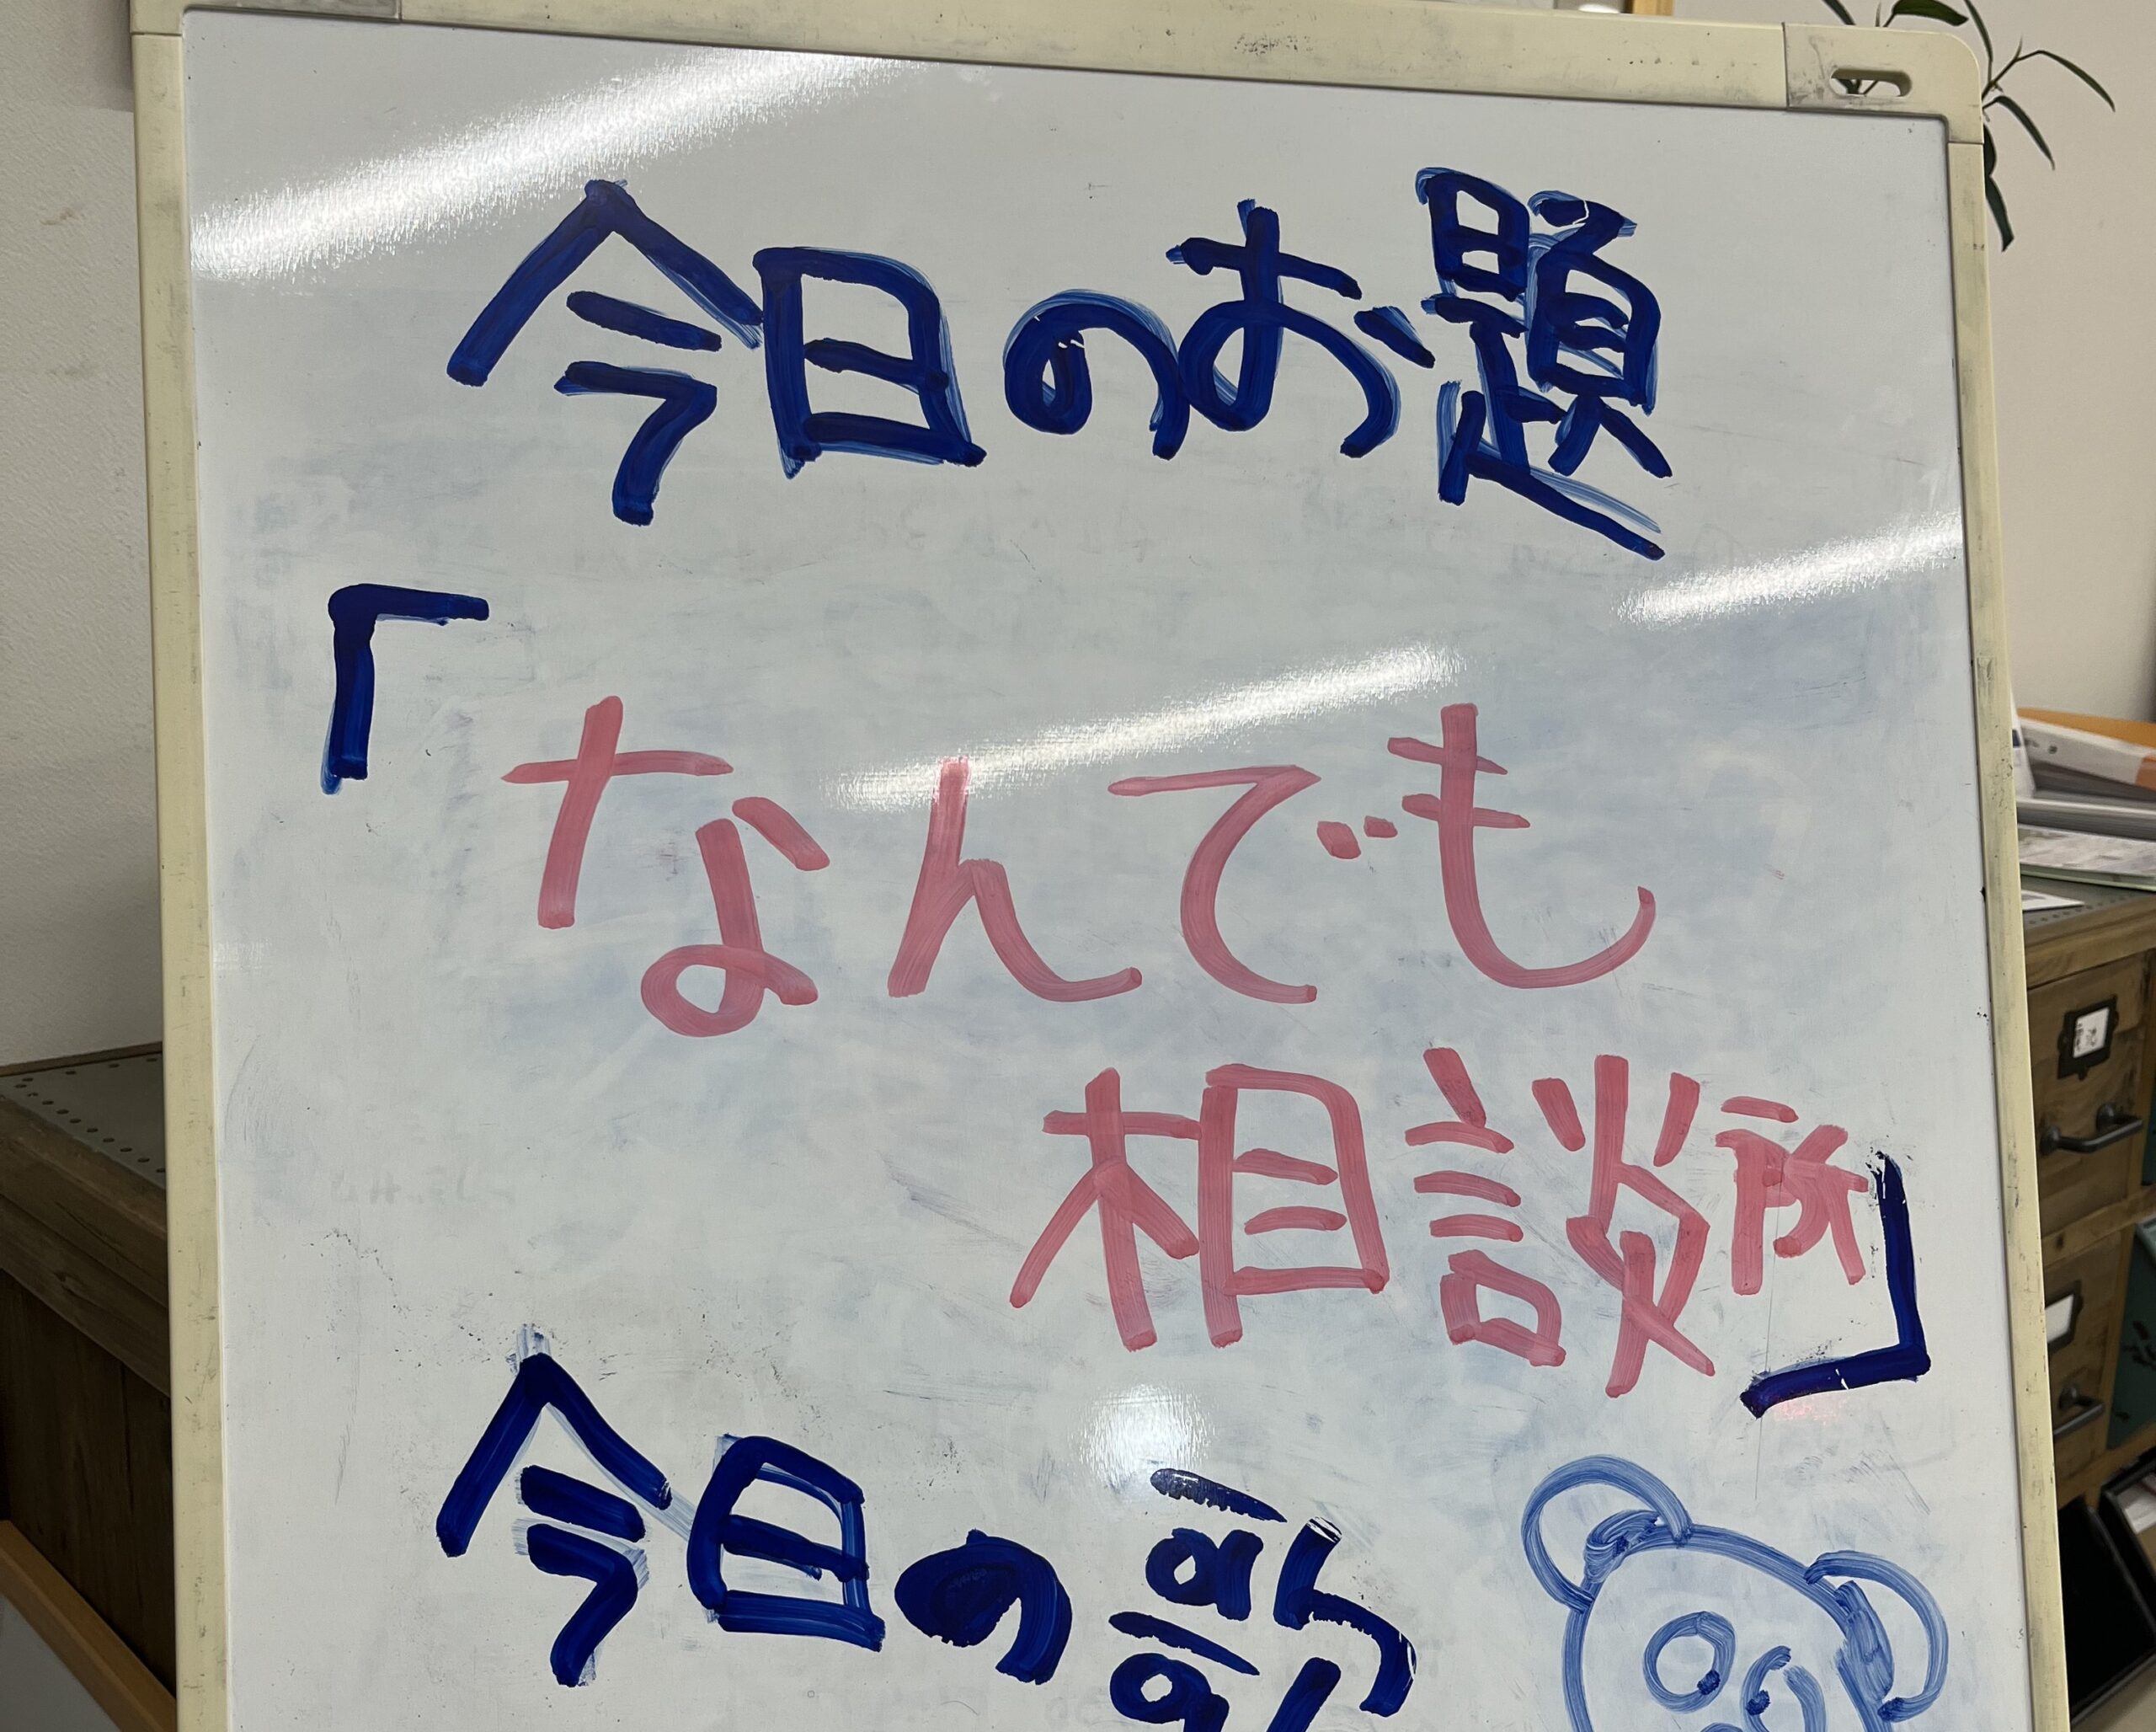 今日のお題
「なんでも
相談所」
今日の歌